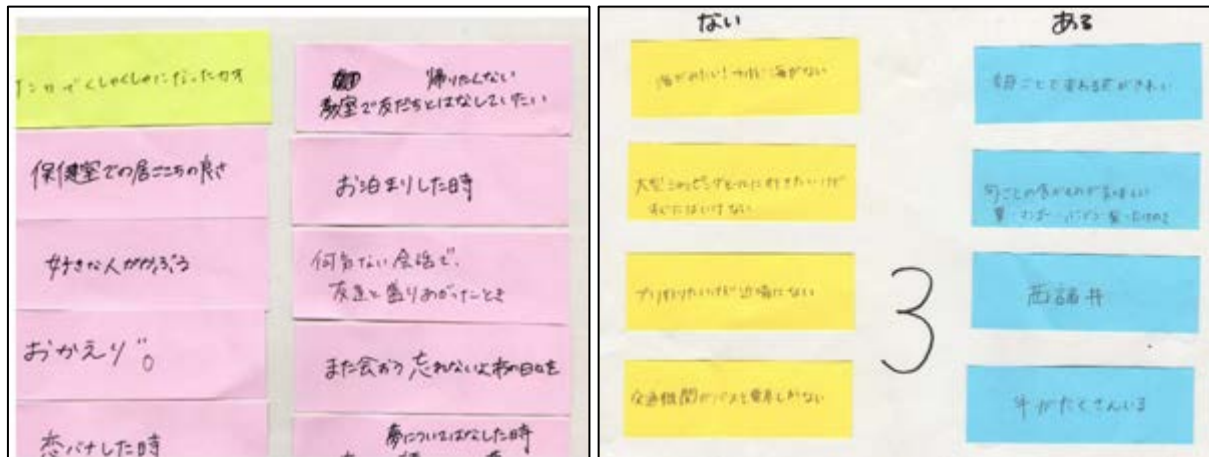 くしゃくしゃになったカオ
保健室での居ごこちの良さ
好きな人がかぶる
おかえり〟。
恋バナした時
帰りたくない
教室で友だちとはなしていたい
お泊まりした時
何気ない会話で、
友達と盛りあがったとき
また会おう 忘れないよ あの日々を
夢についてはなした時
ない
海がみたい!けれど海がない
大型ショッピングモールに行きたいけど
すぐにはいけない
プリ撮りたいけど近場にない
交通機関がバスと電車しかない
3
ある
季節ごとで変わる花がきれい
旬ごとの
西諸弁
牛がたくさんいる